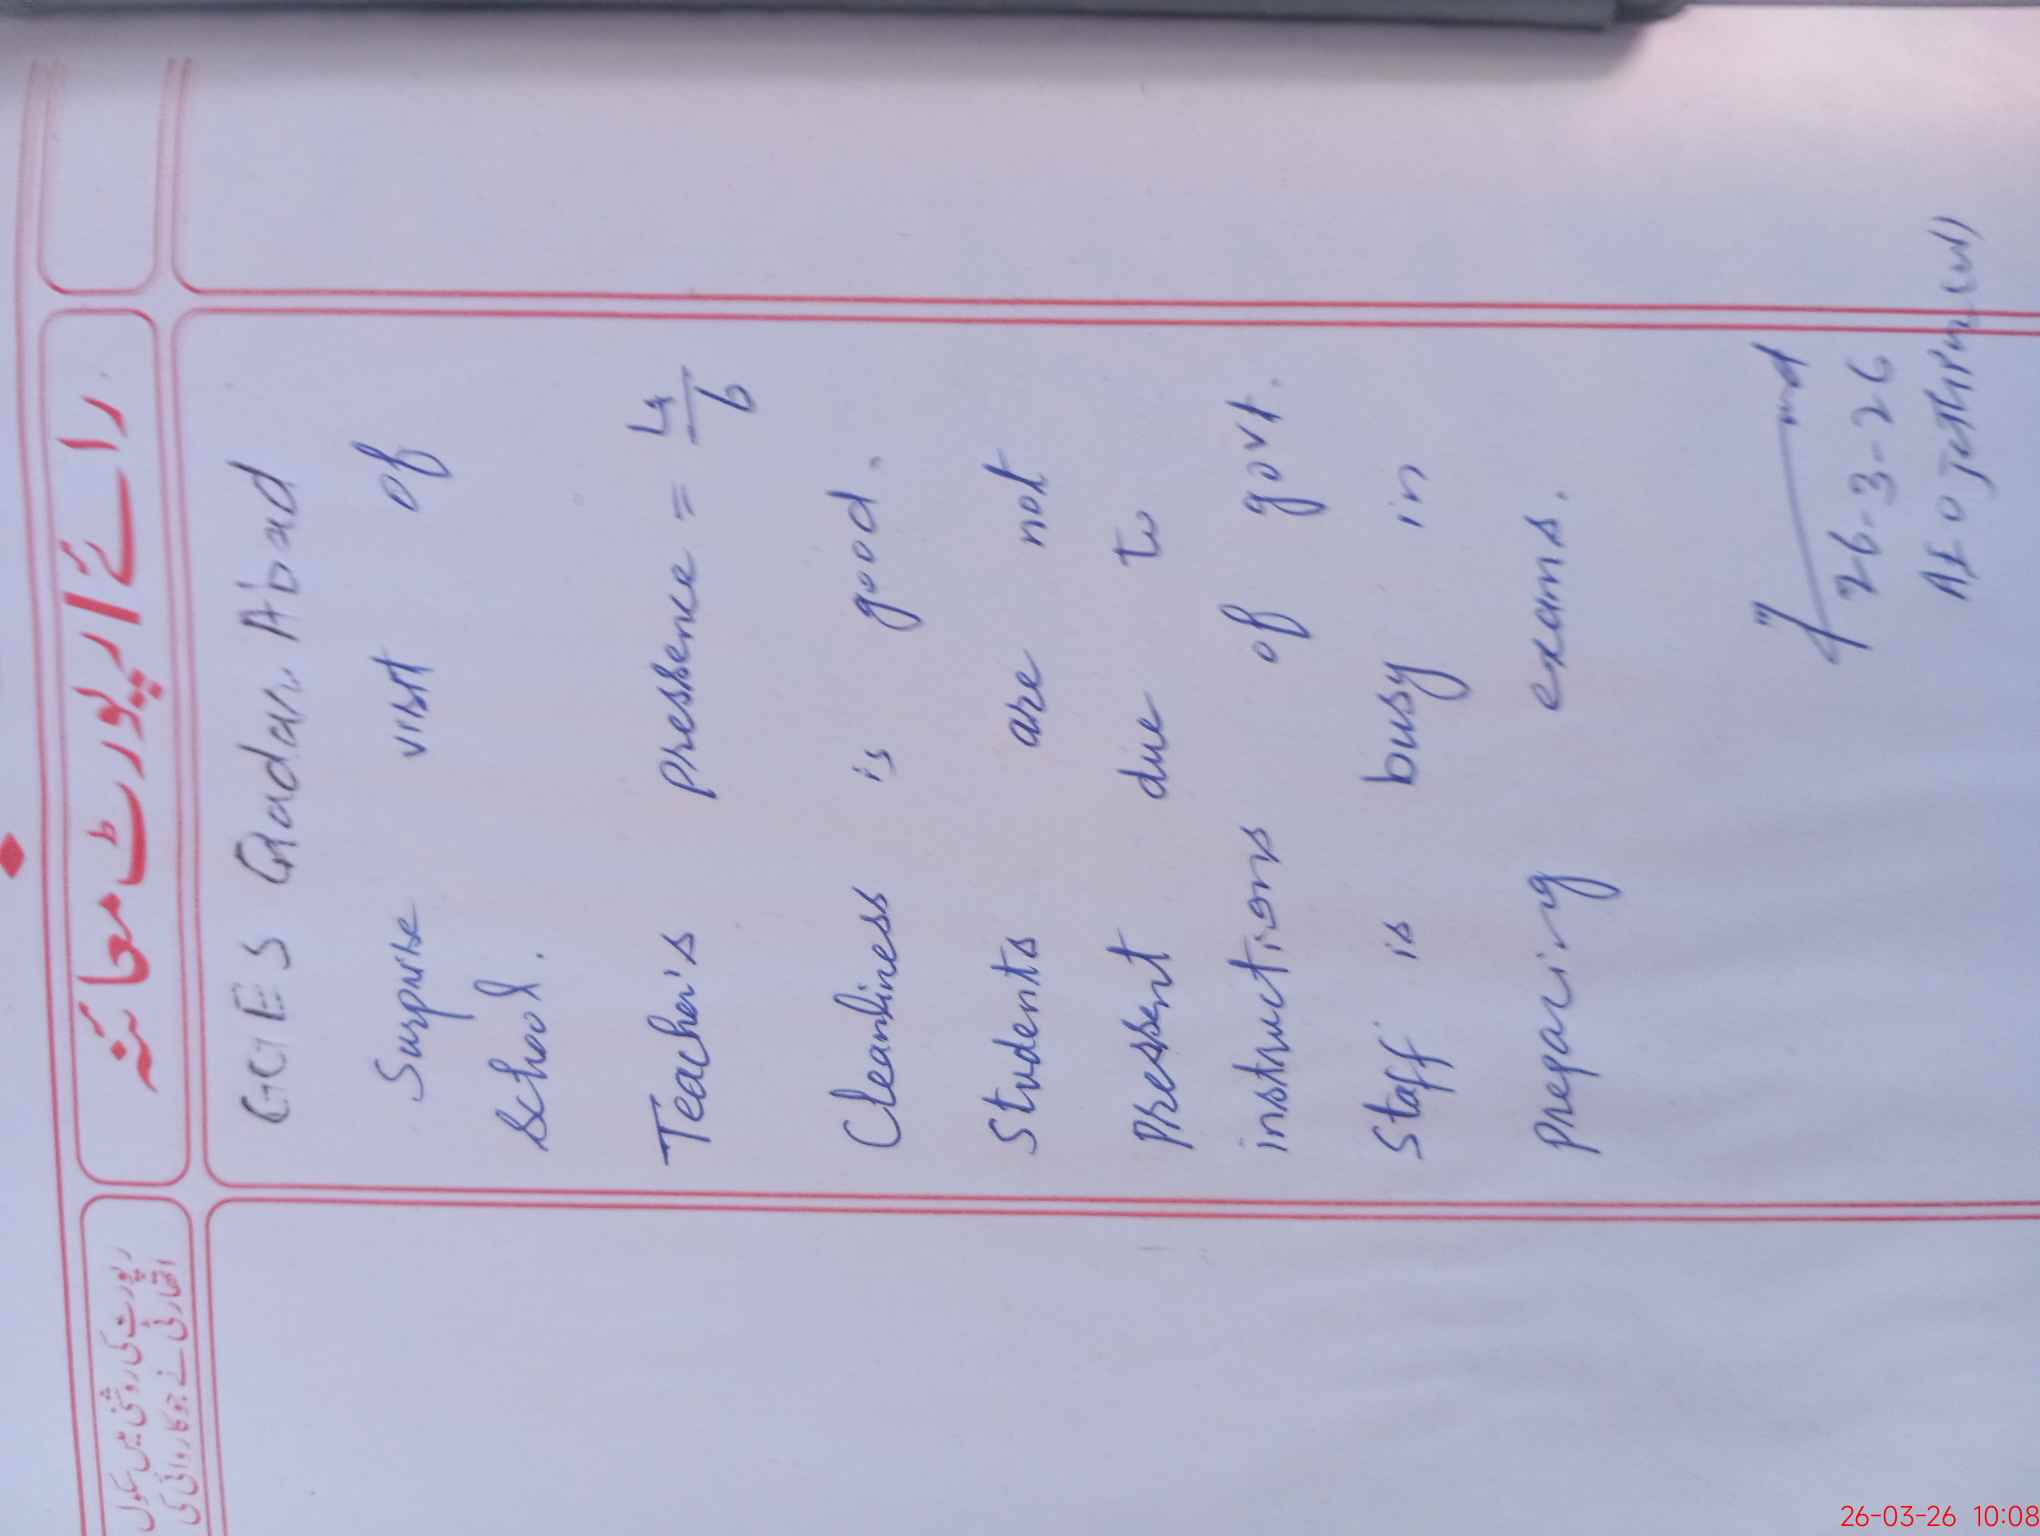 رائے / رپورٹ معائنہ
رپورٹ کی روشنی میں سکول
اتھارٹی نے جو کاروائی کی
GGES Qadar Abad
Surprise visit of
school.
Teacher's pressence = 4/6
Cleanliness is good.
Students are not
pressent due to
instructions of govt.
Staff is busy in
preparing exams.
26-3-26
AEO
26-03-26 10:08